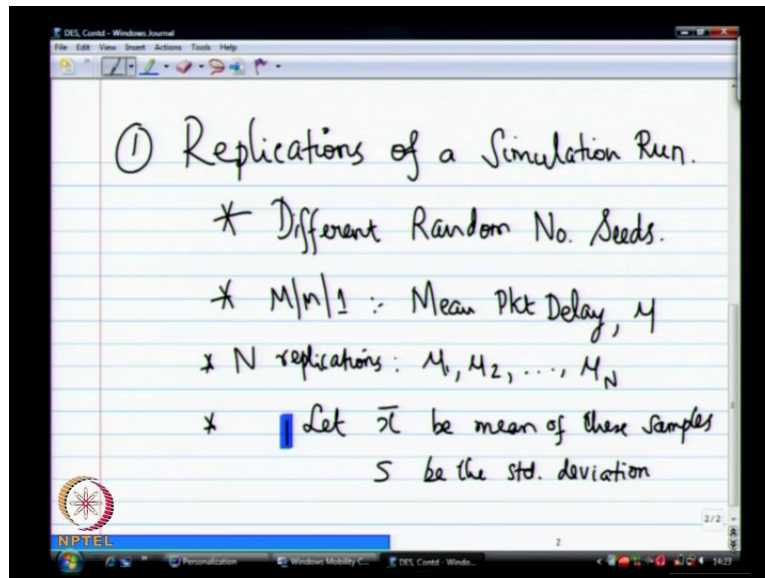 DES, Contd - Windows Journal
File Edit View Insert Actions Tools Help
① Replications of a Simulation Run.
* Different Random No. Seeds.
* M|m|1 :- Mean Pkt Delay, μ
* N replications: μ1, μ2, ..., μN
* Let x̄ be mean of these samples
S be the std. deviation
2/2
2
NPTEL
Personalization Windows Mobility C... DES, Contd - Windo... 14:23